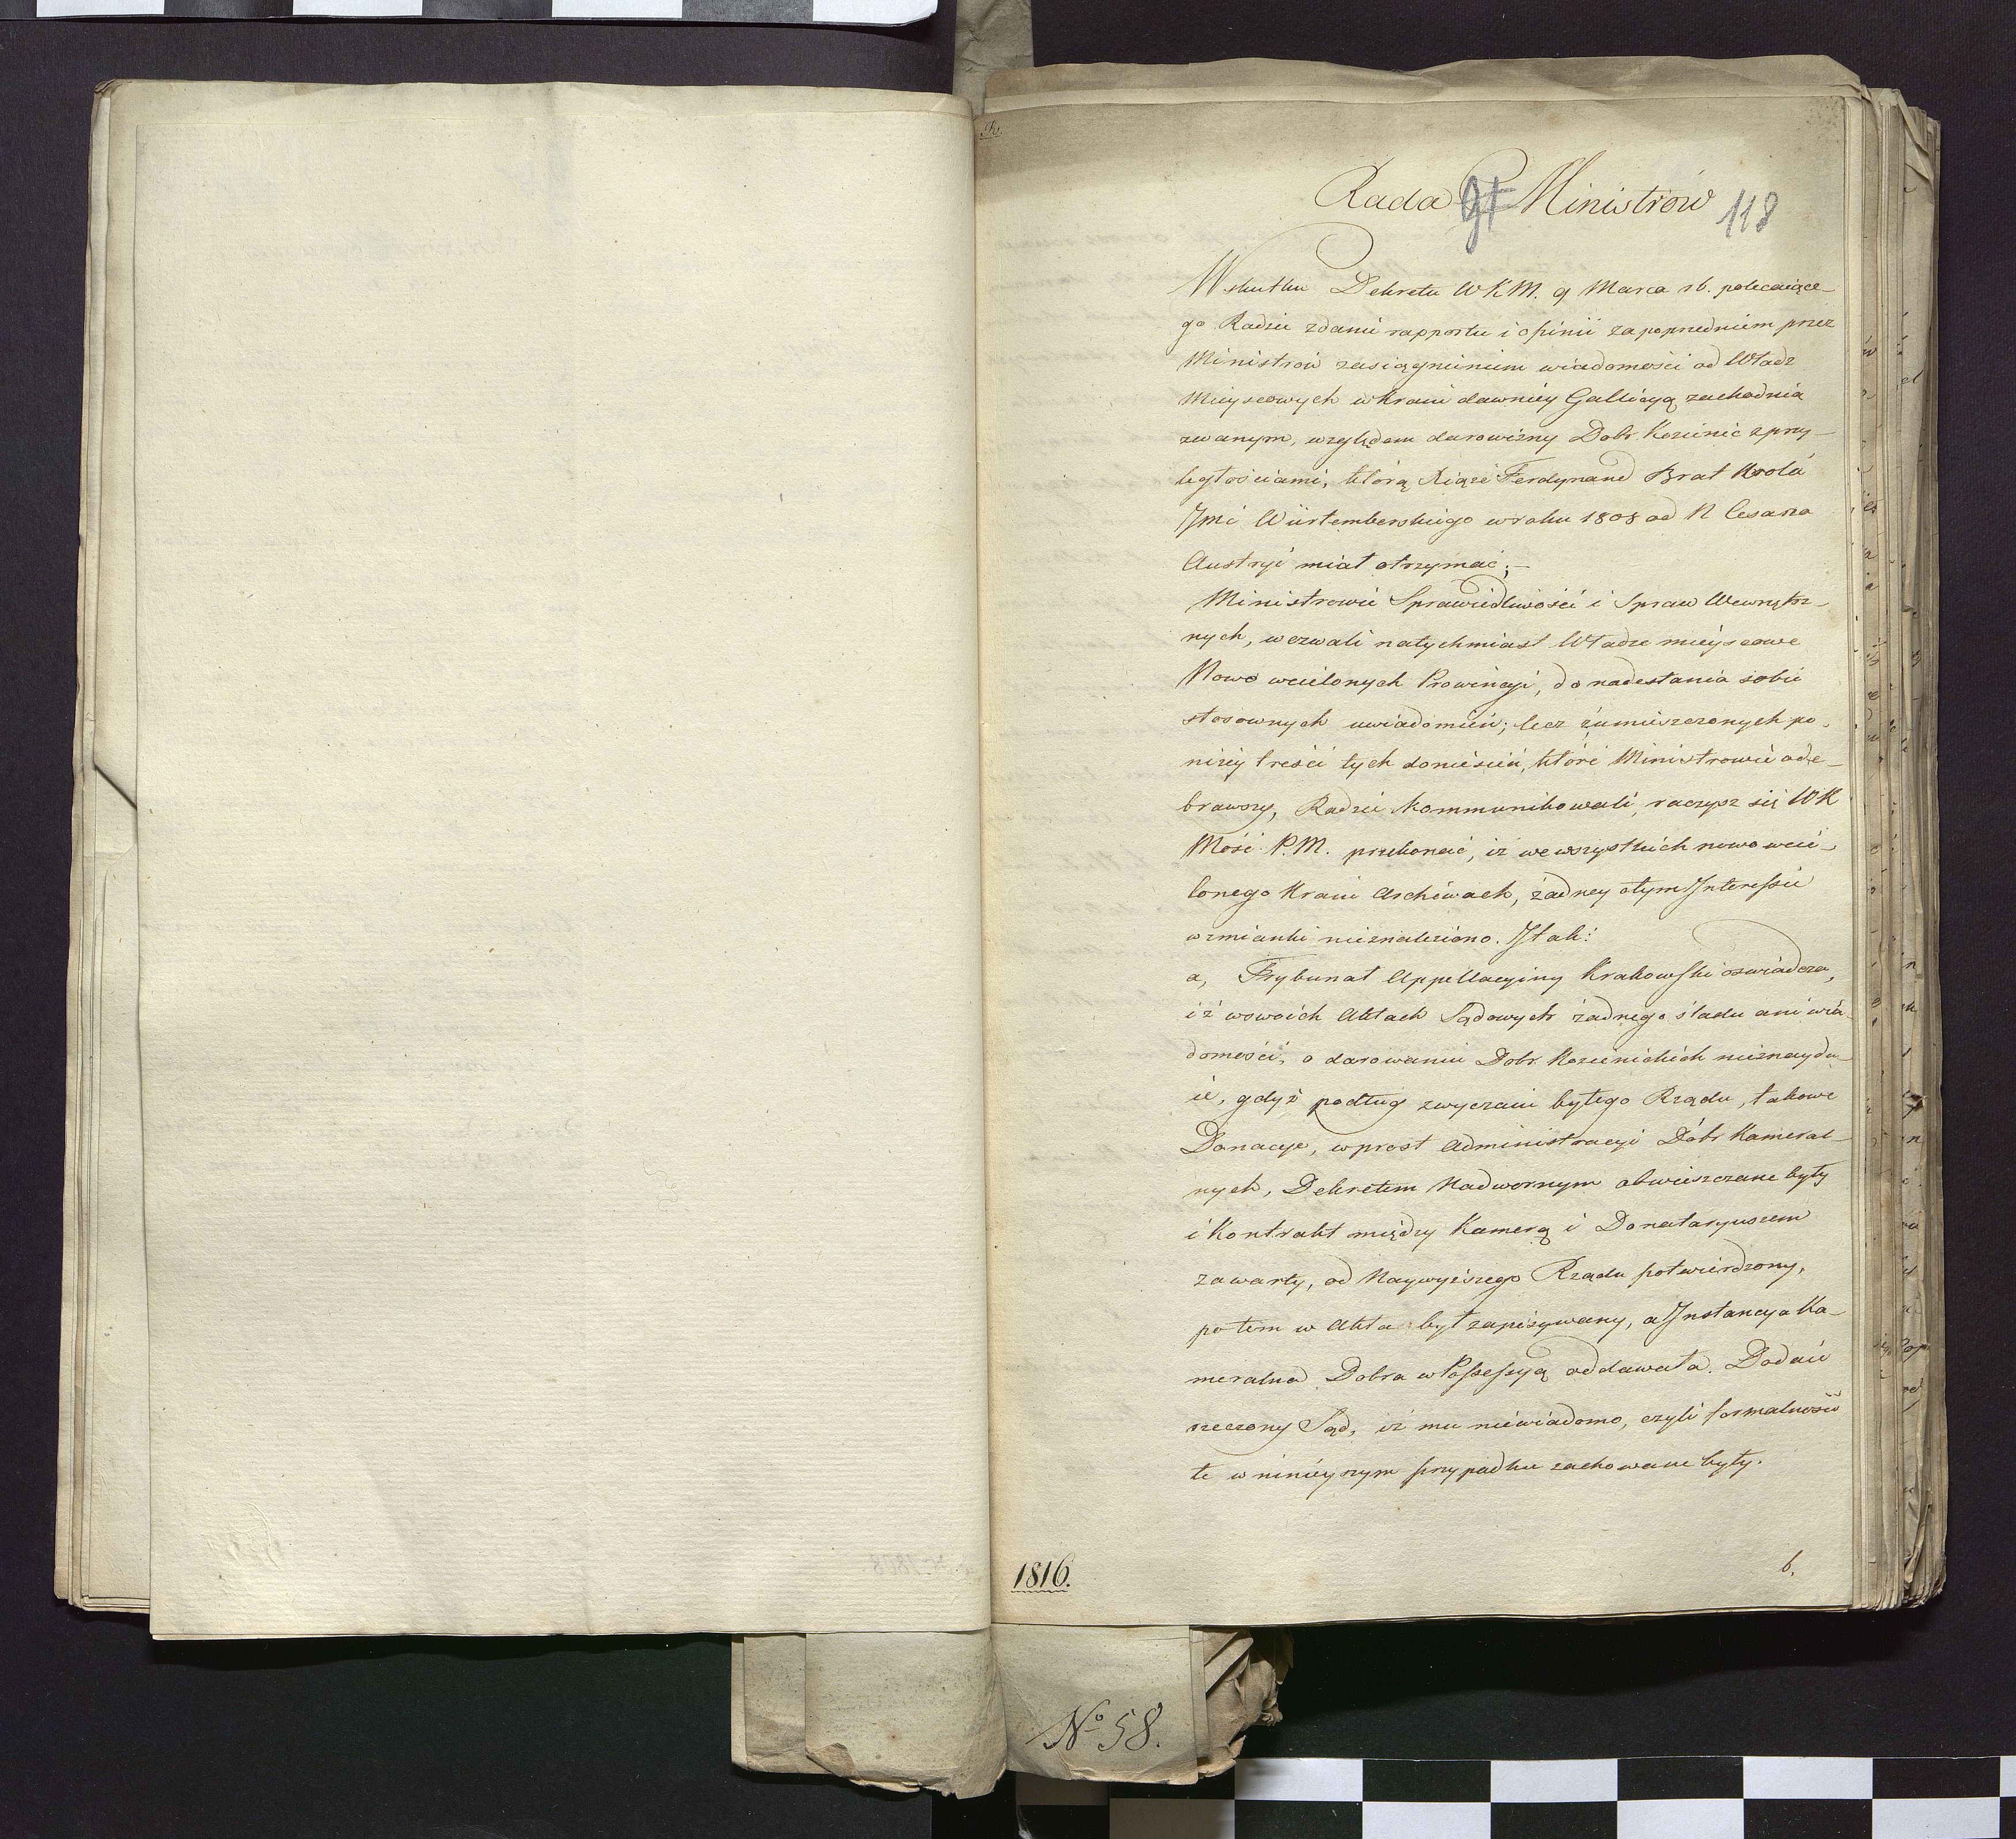 Rada Ministrów
118
Wskutku Dekretu WKM. 9 Marca rb. polecaiące-
go Radzie zdanie rapportu i opinii za poprzedniem przez
Ministrów zasiągnieniem wiadomości od Władz
Mieyscowych w Kraiu dawniey Gallicyą zachodnią
zwanym, względem darowizny Dobr Kozienic z przy-
ległościami, którą Xiąże Ferdynand Brat Krola
Jmci Würtemberskiego w roku 1808 od N Cesarza
Austryi miał otrzymać;-
Ministrowie Sprawiedliwości i Spraw Wewnętrz-
nych, wezwali natychmiast Władze mieyscowe
Nowo wcielonych Prowincyi, do nadesłania sobie
stosownych uwiadomień; lecz zumieszczonych po-
niżey treści tych doniesień, które Ministrowie ode-
brawszy, Radzie kommunikowali, raczysz się WK
Mość P.M. przekonać, iż we wszystkich nowo wcie-
lonego Kraiu Archiwach, żadney otym Interessie
wzmianki nieznaleziono. Jtak:
a, Trybunał Appellacyiny Krakowski oświadcza,
iż wswoich Aktach Sądowych żadnego śladu ani wia-
domości, o darowaniu Dobr Kozienickich nieznaydu-
ie, gdyż podług zwyczaiu byłego Rządu, takowe
Donacye, wprost Administracyi Dóbr Kameral-
nych, Dekretem Nadwornym obwieszczane były
i Kontrakt między Kamerą i Donataryuszem
zawarty, od Naywyższego Rządu potwierdzony,
potem w Akta był zapisywany, a Jnstancya Ka-
meralna Dobra w Possessyą oddawała. Dodaie
rzeczony Sąd, iż mu niewiadomo, czyli formalności
te w ninieyszym przypadku zachowane były.
1816.
b.
No 58.